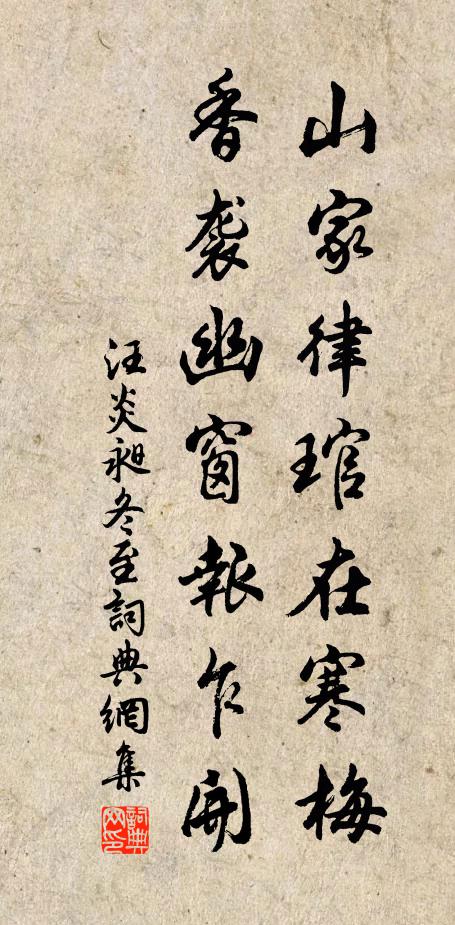 山家律琯在寒梅
香袭幽窗報乍開
汪炎昶冬至詞典網集
詞典网印